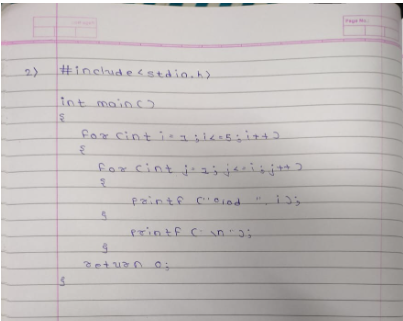 Page No.:
2) #include<stdio.h>
int main()
{
for (int i = 1; i<=5; i++)
{
for (int j = 1; j<=i; j++)
{
printf ("%d ", i);
}
printf ("\n");
}
return 0;
}